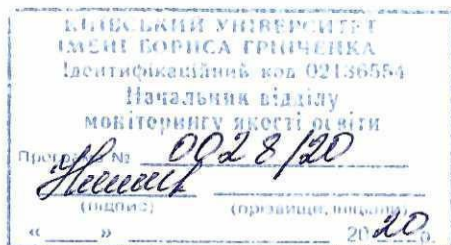 КИЇВСЬКИЙ УНІВЕРСИТЕТ
ІМЕНІ БОРИСА ГРІНЧЕНКА
Ідентифікаційний код 02136554
Начальник відділу
моніторингу якості освіти
Програма № 0028/20
(підпис) (прізвище, ініціали)
« » 2020р.